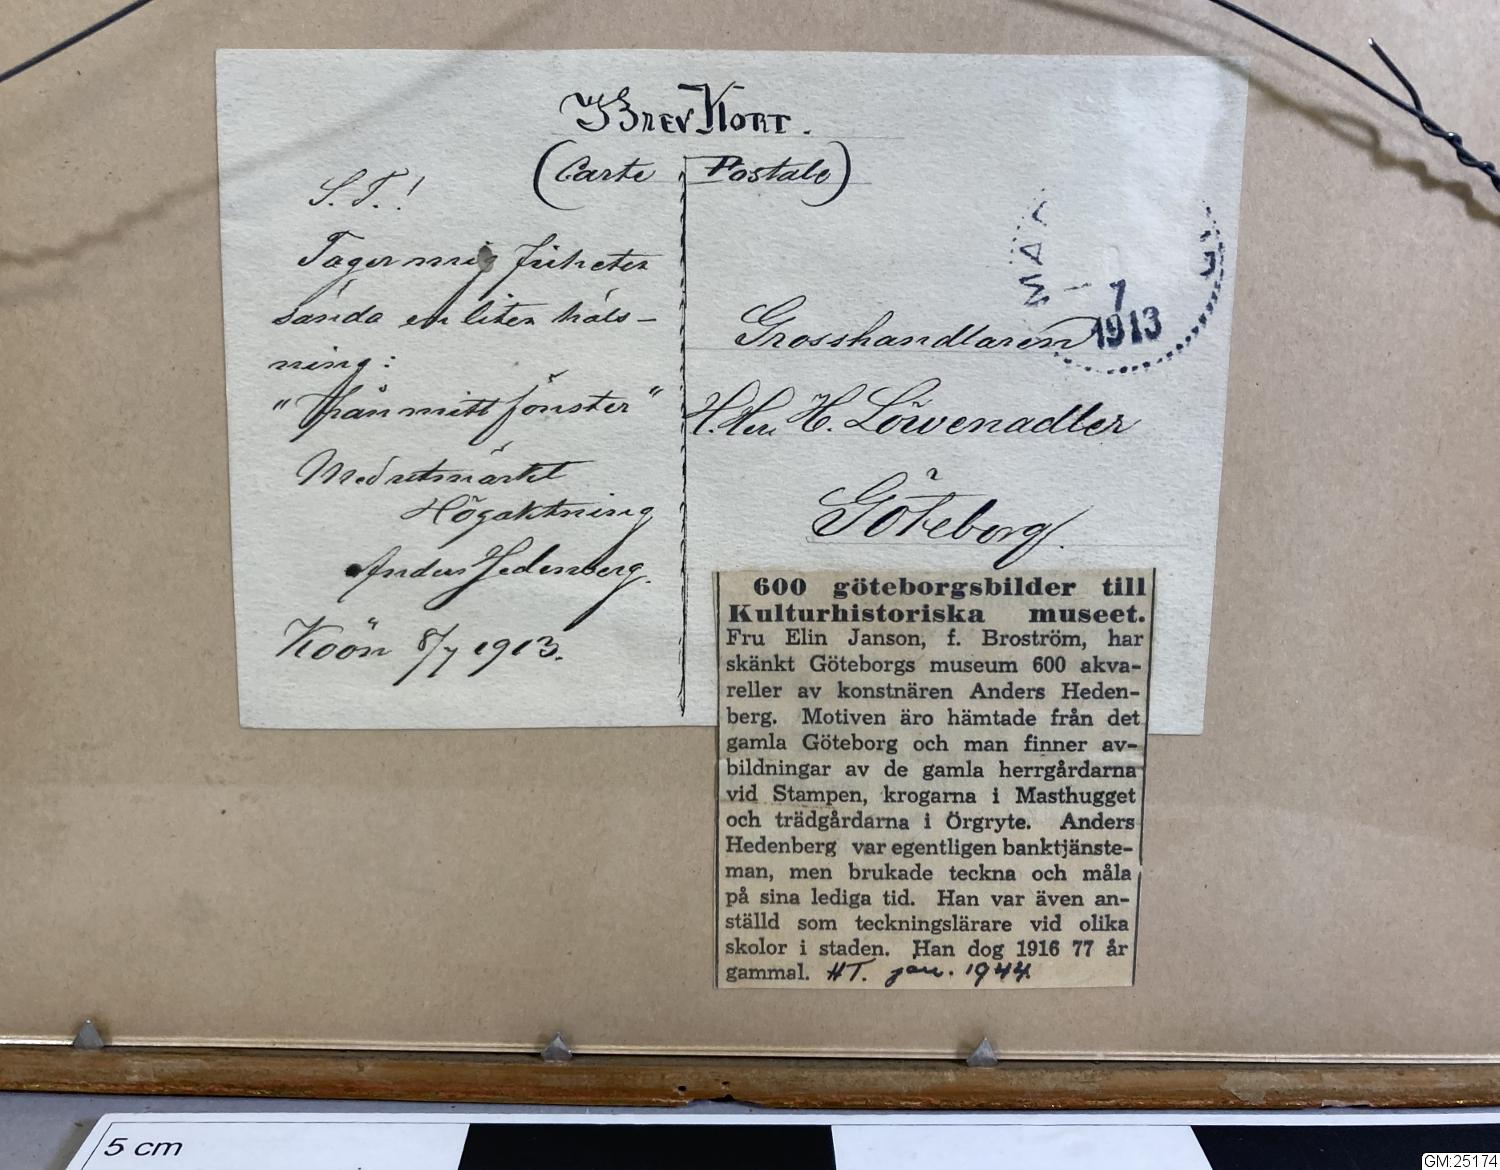 BrevKort.
(Carte Postale)
S. T.!
Tager mig friheten
sända en liten häls-
ning:
"från mitt fönster"
Med utmärkt
Högaktning
Anders Hedenberg.
Koön 8/7 1913.
MAR
7
1913
Grosshandlaren
H. Herr H. Löwenadler
Göteborg.
600 göteborgsbilder till
Kulturhistoriska museet.
Fru Elin Janson, f. Broström, har
skänkt Göteborgs museum 600 akva-
reller av konstnären Anders Heden-
berg. Motiven äro hämtade från det
gamla Göteborg och man finner av-
bildningar av de gamla herrgårdarna
vid Stampen, krogarna i Masthugget
och trädgårdarna i Örgryte. Anders
Hedenberg var egentligen banktjänste-
man, men brukade teckna och måla
på sina lediga tid. Han var även an-
ställd som teckningslärare vid olika
skolor i staden. Han dog 1916 77 år
gammal. HT. jan. 1944
5 cm
GM:25174